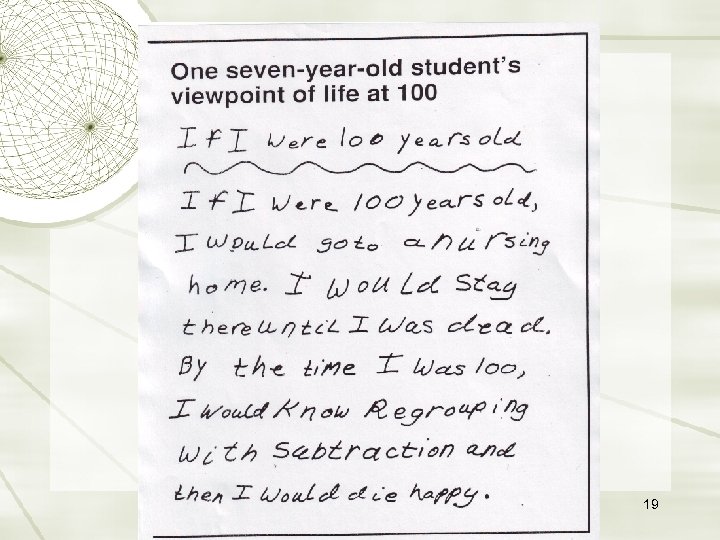 One seven-year-old student's
viewpoint of life at 100
If I were 100 years old
If I were 100 years old,
I would go to a nursing
home. I would stay
there until I was dead.
By the time I was 100,
I would know Regrouping
with subtraction and
then I would die happy.
19